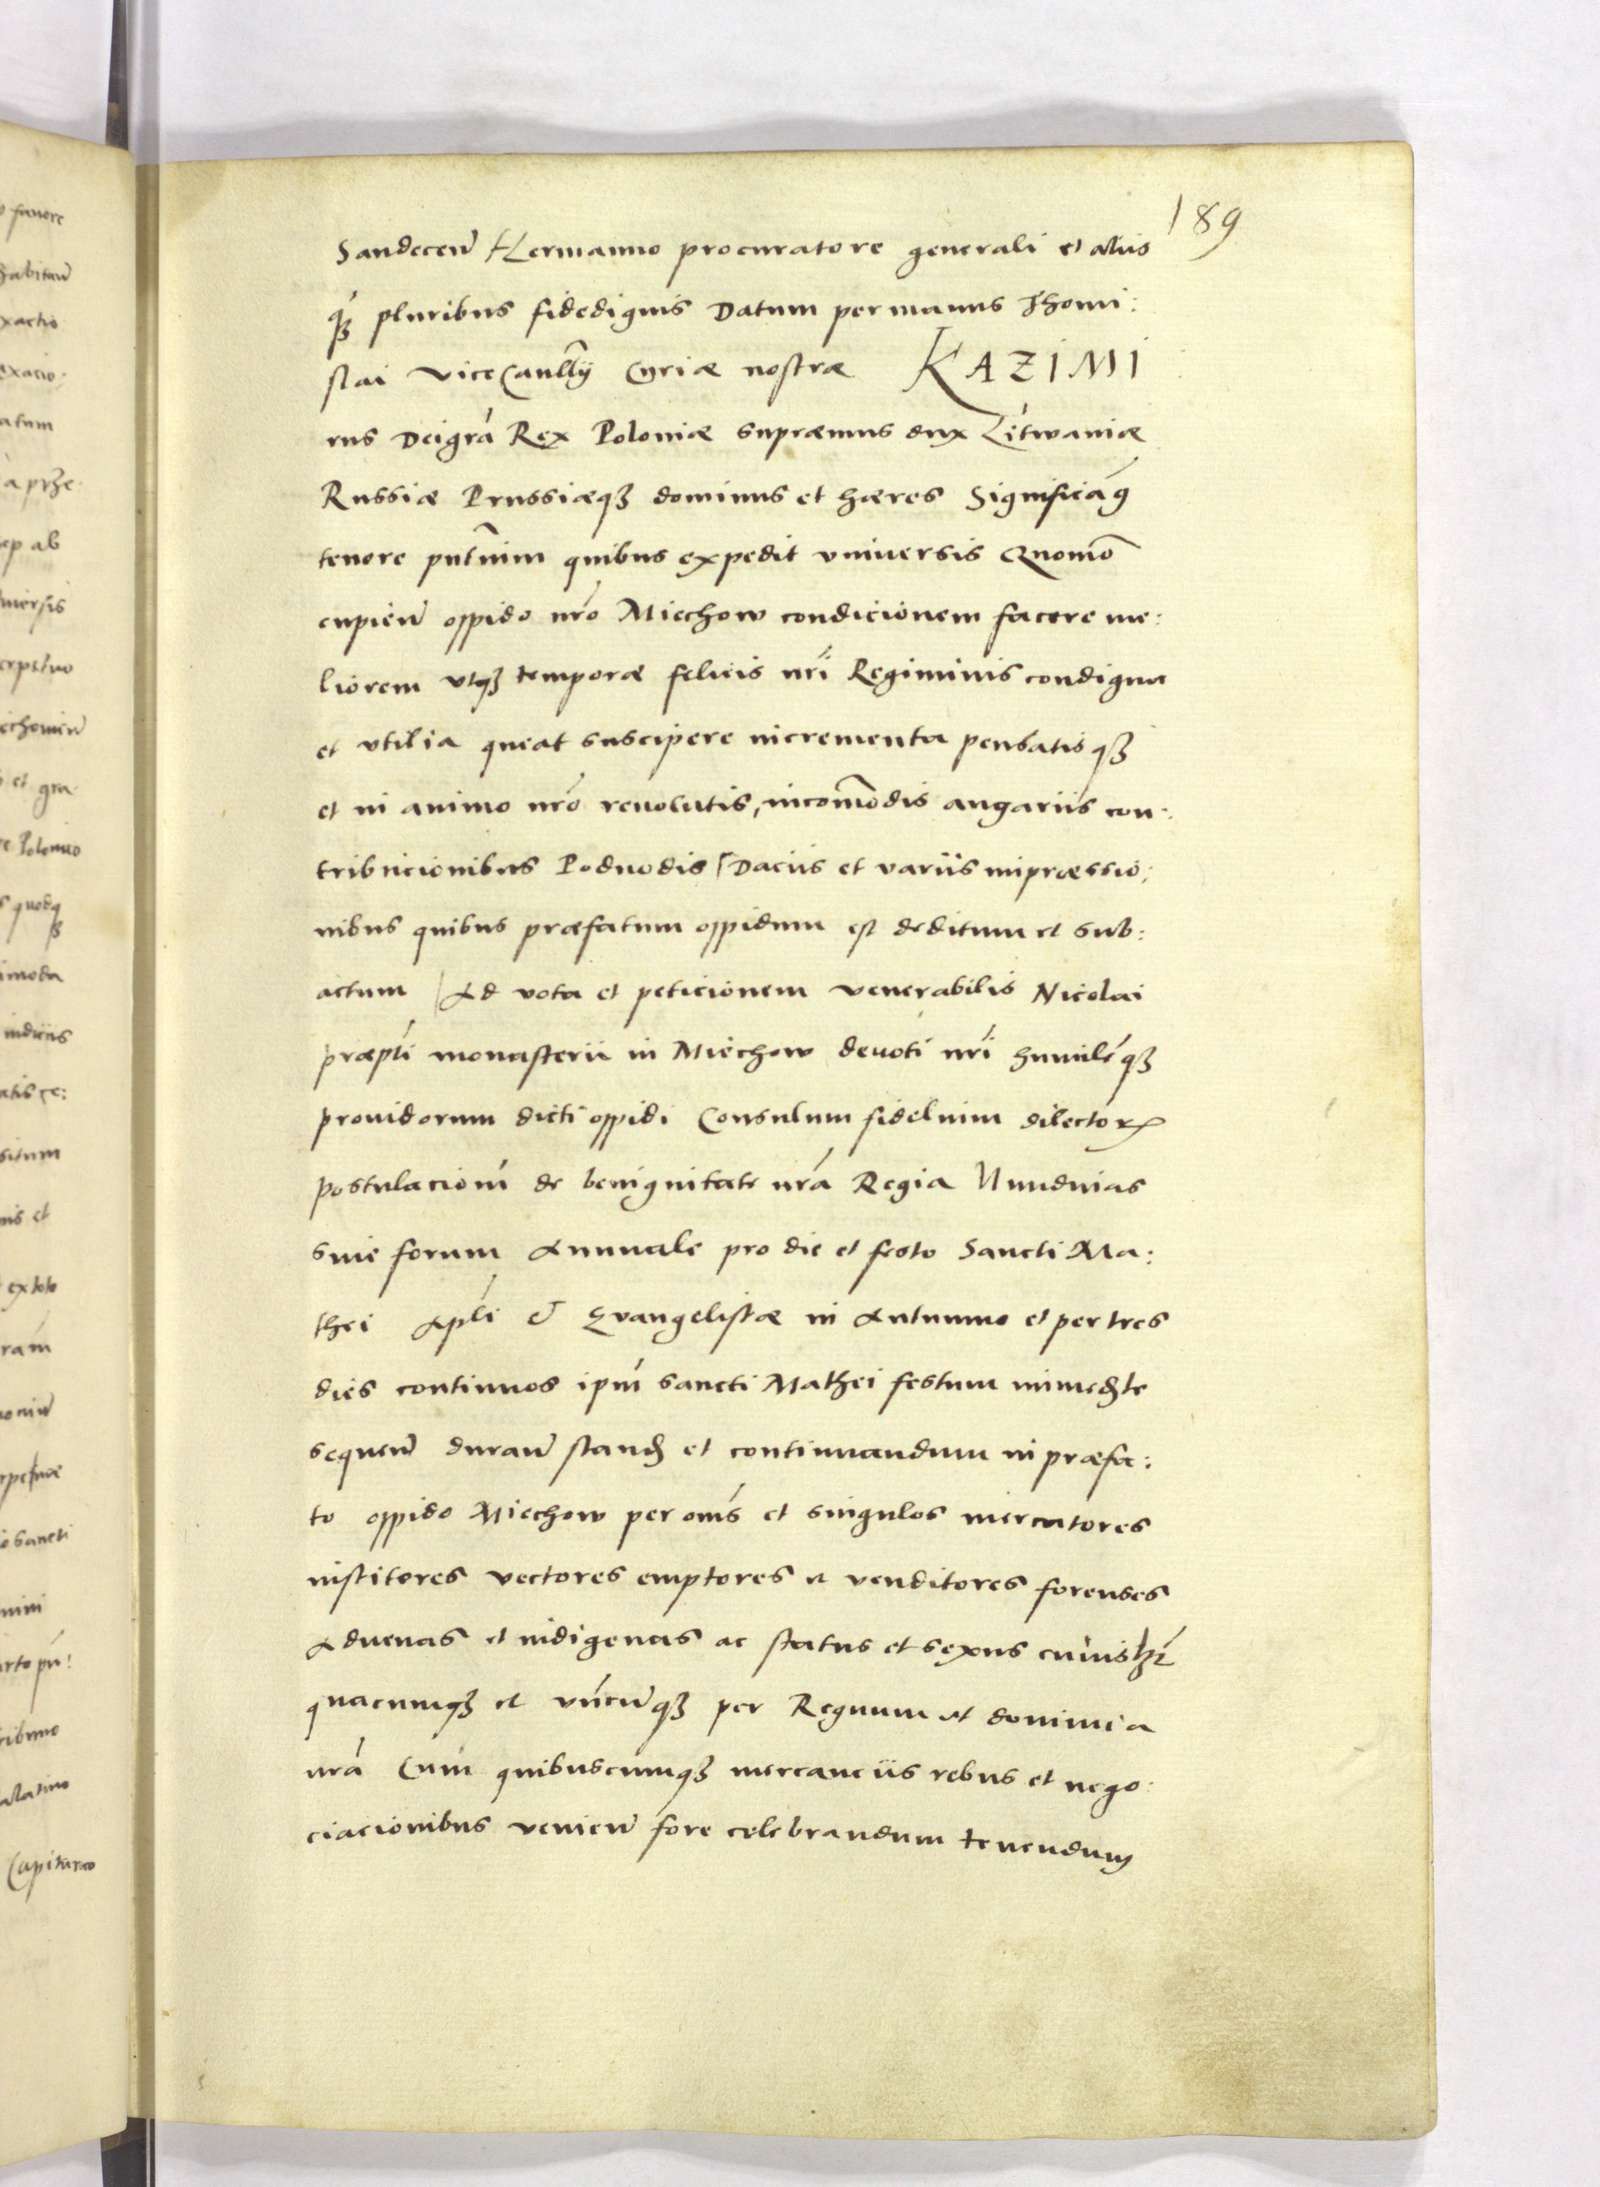 189
Sandecen̄ Hermanno procuratore generali et aliis
qꝫ pluribus fidedignis Datum per manus Thomi:
slai ViceCanllrÿ Curiæ nostræ KAZIMI
rus Dei grã Rex Poloniæ supræmus dux Litwaniæ
Russiæ Prussiæqꝫ dominus et hæres Significamꝰ
tenore pntium quibus expedit vniversis Quomo
cupien̄ oppido nr̃o Miechow condicionem facere me:
liorem vtqꝫ temporæ felicis nr̃i Regiminis condigna
et vtilia queat suscipere incrementa pensatisqꝫ
et in animo nr̃o revolutis, incomodis angariis con:
tribucionibus Poduodis Daciis et variis impræssio:
nibus quibus præfatum oppidum est deditum et sub:
actum Ad vota et peticionem venerabilis Nicolai
præpti monasterii in Miechow devoti nr̃i humilẽqꝫ
prouidorum dicti oppidi Consulum fidelium dilectoꝝ
postulacionẽ de benignitate nr̃a Regia Nundinas
siue forum Annuale pro die et festo Sancti Ma:
thei Apli & Evangelistæ in Autumno et per tres
dies continuos ipm̃ sancti Mathei festum immedte
sequen̄ duran̄ stand et continuandum in præfa:
to oppido Miechow per oms̃ et singulos mercatores
institores vectores emptores et venditores forenses
Advenas et indigenas ac status et sexus cuiuslꝫt
quacumqꝫ et vn̄cunqꝫ per Regnum et dominia
nr̃a Cum quibuscumqꝫ mercanciis rebus et nego:
ciacionibus venien̄ fore celebrandum tenendum